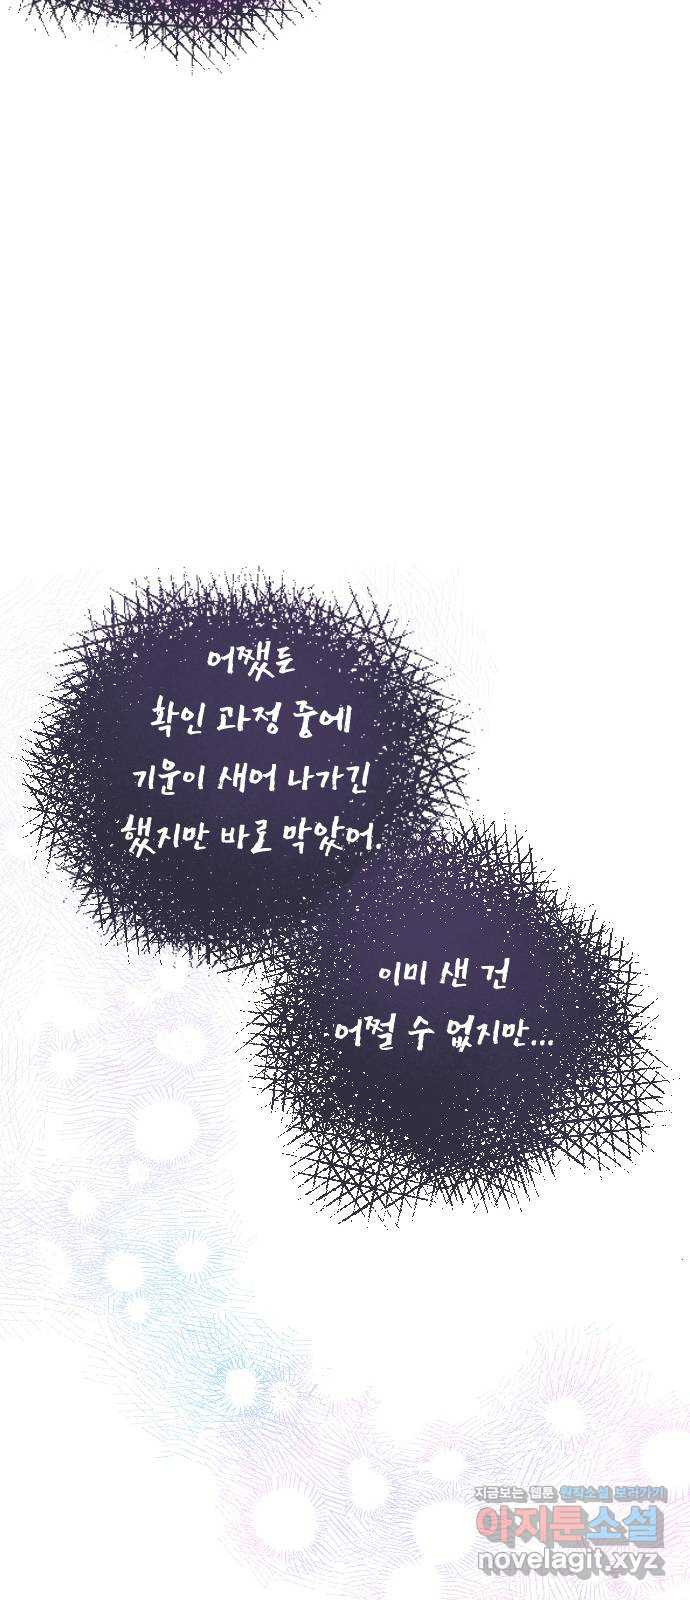 어쨌든
확인 과정 중에
기운이 새어 나가긴
했지만 바로 막았어.
이미 샌 건
어쩔 수 없지만...
지금보는 웹툰 원작소설 보러가기
아지툰소설
novelagit.xyz